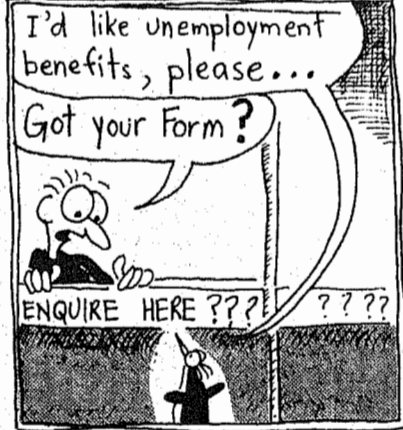 I'd like unemployment
benefits, please...
Got your Form?
ENQUIRE HERE ??? ? ? ??